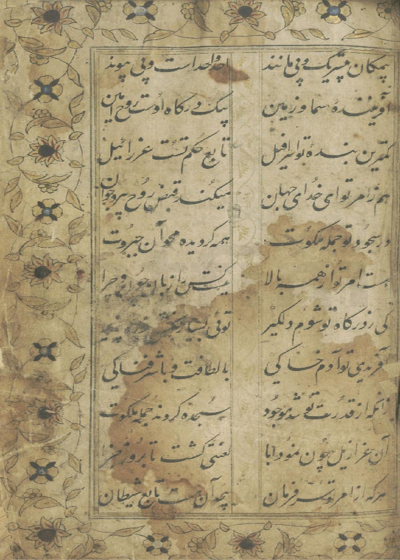 بیمکان بیشریک و بی مانند او واحد است و بی پیوند
آفرینندهٔ سما و زمین پیک درگاه اوست روح امین
کمترین بندهٔ تو اسرافیل تابع حکم تست عزرائیل
هم ز امر تو ای خدای جهان میکند قبض روح پیر و جوان
در سجود تو جمله ملکوت همه گردیده محو آن جبروت
هست امر تو از همه بالا کس از چون و چرا
کی ز درگاه تو شوم دلگیر توئی
آفریدی تو آدم خاکی با لطافت و با شرف پاکی
زانکه از قدرت تو شد موجود سجده کردند جمله ملکوت
آن عزازیل چون نمود ابا لعنتی گشت تا بروز جزا
هر که از امر تو فرمان آن تابع شیطان